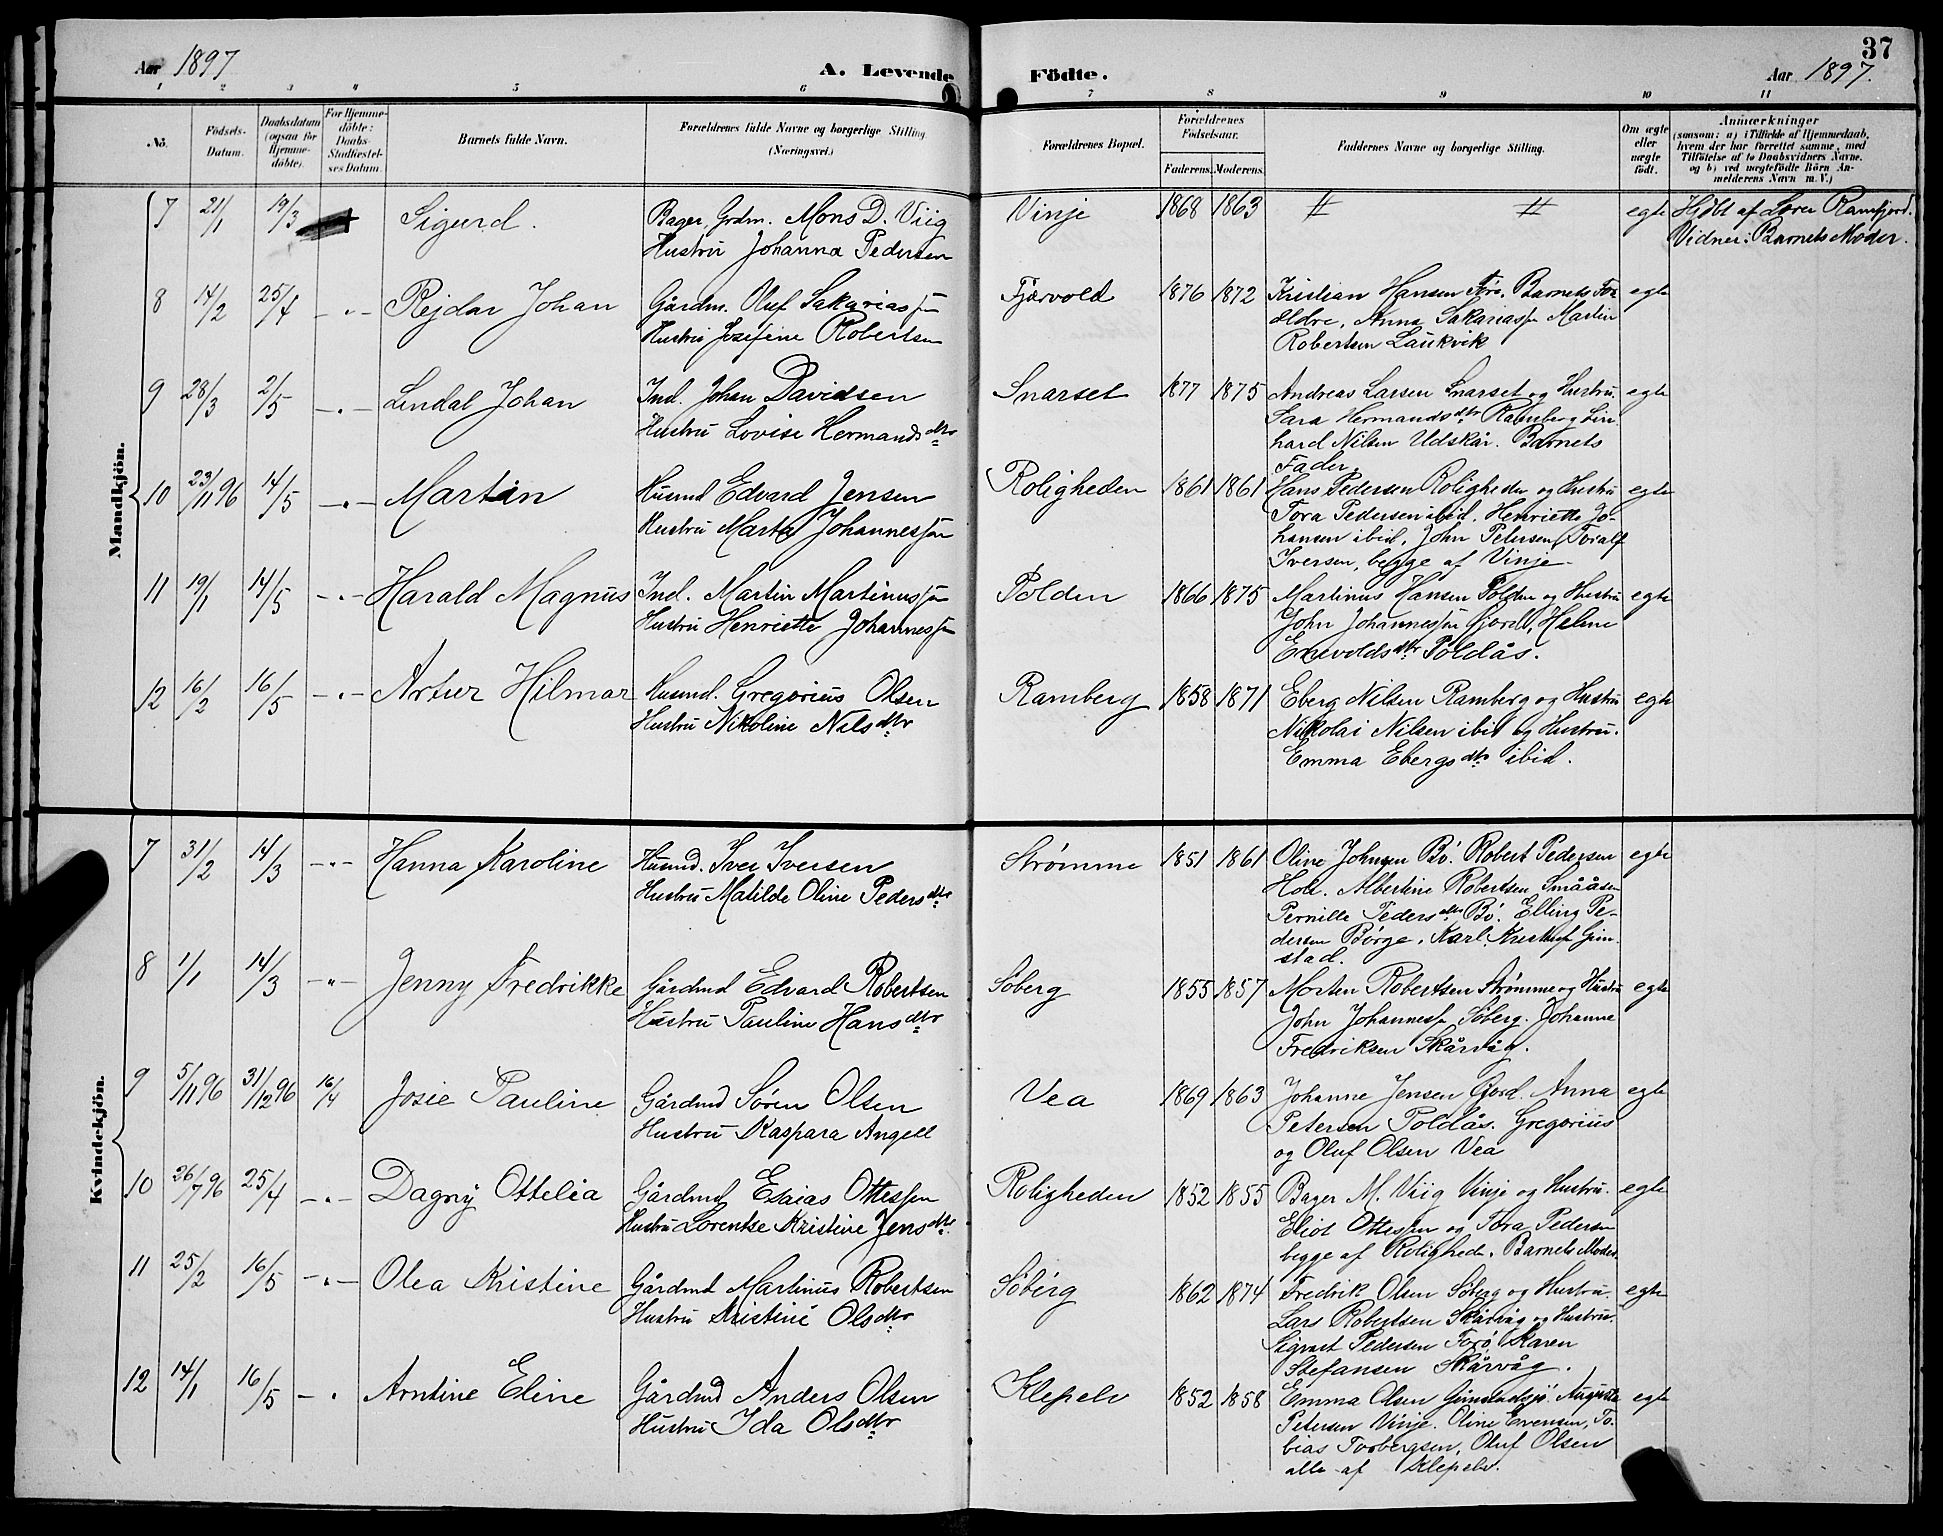 37
Aar 1897 A. Levende Födte. Aar 1897.
1 2 3 4 5 6 7 8 9 10 11
No.
Födsels-
Datum.
Daabsdatum
(ogsaa for
Hjemme-
döbte).
For Hjemme-
döbte:
Daabs-
Stadfæstel-
ses Datum.
Barnets fulde Navn.
Forældrenes fulde Navne og borgerlige Stilling
(Næringsvei.)
Forældrenes Bopæl.
Forældrenes
Födselsaar.
Faderens. Moderens.
Faddernes Navne og borgerlige Stilling.
Om ægte
eller
uægte
født.
Anmærkninger
(saasom: a) i Tilfælde af Hjemmedaab,
hvem der har forrettet samme, med
Tilföielse af to Daabsvidners Navne.
og b) ved uægtefödte Börn An-
melderens Navn m. V.)
Mandkjön.
7 21/1 19/3 Sigurd. Bager, Grdm. Mons D. Viig
Hustru Johanna Pedersen
Vinje 1868 1863 〃 〃 egte Hjdbt af Lærer Ramfjord.
Vidner: Barnets Moder.
8 14/2 25/4 -〃- Rejdar Johan Gårdm. Oluf Sakariassen
Hustru Josefine Robertsen
Fjærvold 1876 1872 Kristian Hansen Förö. Barnets For
ældre, Anna Sakariassen Martin
Robertsen Laukvik
egte
9 28/3 2/5 -〃- Lindal Johan Ind. Johan Davidsen
Hustru Lovise Hermandsdtr
Snarset 1877 1875 Andreas Larsen Snarset og Hustru.
Sara Hermandsdtr Ramberg Lin
hard Nilsen Udskår. Barnets
Fader.
egte
10 23/11 96 14/5 -〃- Martin Husmd Edvard Jensen
Hustru Marta Johannessen
Roligheden 1861 1861 Hans Pedersen Roligheden og Hustru
Tora Pedersen ibid. Henriette Jo-
hansen ibid. John Petersen, Toralf
Iversen, begge af Vinje.
egte
11 19/1 14/5 -〃- Harald Magnus Ind. Martin Martinussen
Hustru Henriette Johannessen
Polden 1866 1875 Martinus Hansen Polden og Hustru
John Johannessen Gjord, Helene
Enevoldsdtr Poldås.
egte
12 16/2 16/5 -〃- Artur Hilmar Husmd. Gregorius Olsen
Hustru Nikoline Nilsdtr
Ramberg 1858 1871 Eberg Nilsen Ramberg og Hustru
Nikolai Nilsen ibid og Hustru.
Emma Ebergsdtr ibid.
egte
Kvindekjön.
7 31/2 14/3 -〃- Hanna Karoline Husmd. Iver Iversen
Hustru Matilde Oline Pedersdtr
Strømme 1851 1861 Oline Johnsen Bö. Robert Pedersen
Holt. Albertine Robertsen Smååsen
Pernille Pedersdtr Bö. Elling Pe-
dersen Börge. Karl Kristofs Grim
stad.
egte
8 1/1 14/3 -〃- Jenny Fredrikke Gårdmd Edvard Robertsen
Hustru Pauline Hansdtr
Söberg 1855 1857 Morten Robertsen Strømme og Hustru
John Johannessen Söberg. Johanne
Fredriksen Skårvåg.
egte
9 5/11 96 31/12 96 16/4 Josie Pauline Gårdmd Søren Olsen
Hustru Kaspara Angell
Vea 1869 1863 Johanne Jensen Gjord. Anna
Petersen Poldås. Gregorius
og Oluf Olsen Vea
egte
10 26/7 96 25/4 -〃- Dagny Ottelia Gårdmd Esaias Ottessen
Hustru Lorentse Kristine Jensdtr.
Roligheden 1852 1855 Bager M. Viig Vinje og Hustru.
Eliot Ottessen og Tora Pedersen
begge af Roligheden. Barnets Moder.
egte
11 25/2 16/5 -〃- Olea Kristine Gårdmd Martinus Robertsen
Hustru Kristine Olsdtr
Söberg 1862 1874 Fredrik Olsen Söberg og Hustru.
Lars Robertsen Skårvåg og Hustru.
Sigvart Pedersen Forö, Karen
Stefansen Skårvåg.
egte
12 14/1 16/5 -〃 Arntine Eline Gårdmd Anders Olsen
Hustru Ida Olsdtr
Klepelv 1852 1858 Emma Olsen Grimstadsjö. Augusta
Petersen Vinje. Oline Evensen, To-
bias Torbergsen, Oluf Olsen
alle af Klepelv.
egte